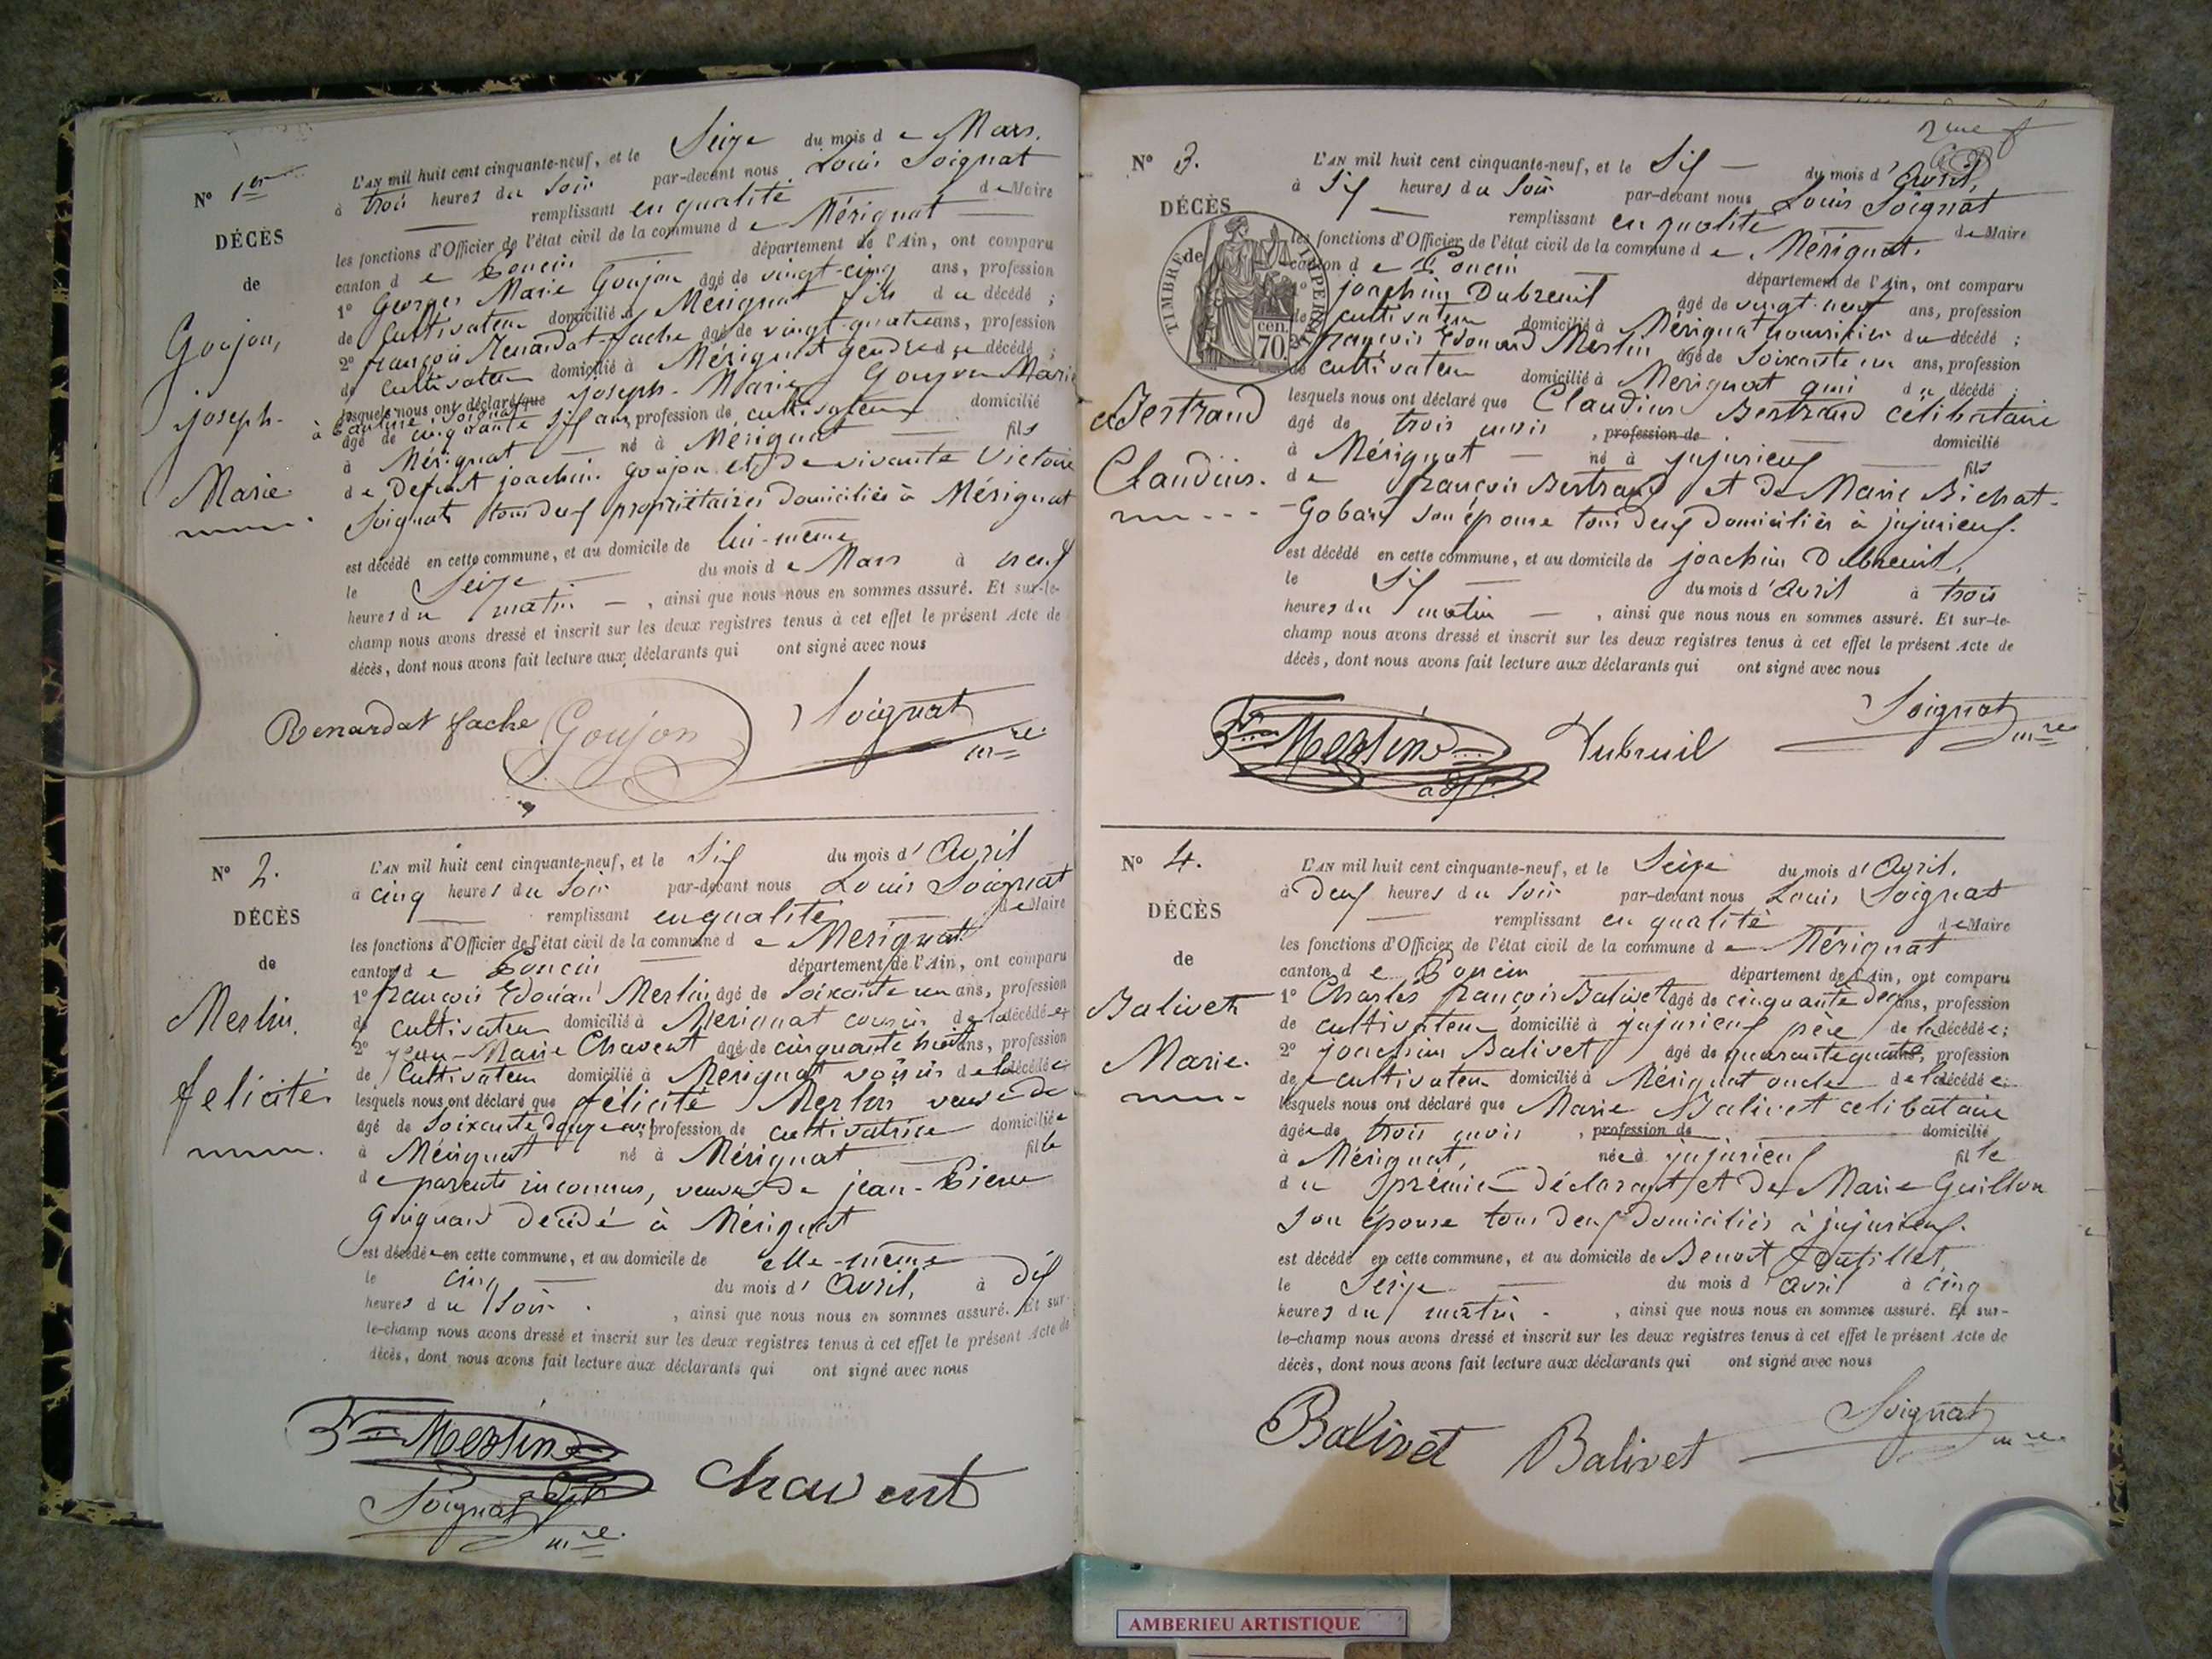 N° 1er
DÉCÈS
de
Goujon,
joseph-
Marie
L'AN mil huit cent cinquante-neuf, et le Seize du mois de Mars.
à trois heures du Soir par-devant nous Louis Soignat
remplissant en qualité de Maire
les fonctions d'Officier de l'état civil de la commune de Mérignat
canton de Poncin département de l'Ain, ont comparu
1° Georges Marie Goujon âgé de vingt-cinq ans, profession
de Cultivateur domicilié à Mérignat fils du décédé ;
2° françois Renardat-fache âgé de vingt-quatre ans, profession
de cultivateur domicilié à Mérignat gendre du décédé ;
lesquels nous ont déclaré que joseph-Marie Goujon Marié
à Soignat
âgé de cinquante six ans, profession de cultivateur domicilié
à Mérignat né à Mérignat fils
de Défunt joachim Goujon et de vivante Victoire
Soignat tous deux propriétaires domiciliés à Mérignat
est décédé en cette commune, et au domicile de lui-même
le Seize du mois de Mars à neuf
heures du matin, ainsi que nous nous en sommes assuré. Et sur-le-
champ nous avons dressé et inscrit sur les deux registres tenus à cet effet le présent Acte de
décès, dont nous avons fait lecture aux déclarants qui ont signé avec nous
Renardat fache Goujon Soignat
mre
N° 2.
DÉCÈS
de
Merlin
félicité
L'AN mil huit cent cinquante-neuf, et le Six du mois d'Avril
à cinq heures du Soir par-devant nous Louis Soignat
remplissant en qualité de Maire
les fonctions d'Officier de l'état civil de la commune de Mérignat
canton de Poncin département de l'Ain, ont comparu
1° françois Edouard Merlin âgé de Soixante un ans, profession
de cultivateur domicilié à Mérignat cousin de la décédée
2° jean-Marie Chavent âgé de cinquante huit ans, profession
de Cultivateur domicilié à Mérignat voisin de la décédée
lesquels nous ont déclaré que félicité Merlin veuve de
âgé de Soixante douze ans, profession de cultivatrice domiciliée
à Mérignat né à Mérignat fille
de parents inconnus, veuve de jean-Pierre
Guignard décédé à Mérignat
est décédée en cette commune, et au domicile de elle-même
le cinq du mois d'Avril, à dix
heures du Soir, ainsi que nous nous en sommes assuré. Et sur-
le-champ nous avons dressé et inscrit sur les deux registres tenus à cet effet le présent Acte de
décès, dont nous avons fait lecture aux déclarants qui ont signé avec nous
Merlin adjt Chavent
Soignat
mre
2me f
N° 3.
DÉCÈS
de
TIMBRE IMPERIAL
70 cen.
Bertrand
Claudius.
L'AN mil huit cent cinquante-neuf, et le Six du mois d'Avril,
à Six heures du Soir par-devant nous Louis Soignat
remplissant en qualité de Maire
les fonctions d'Officier de l'état civil de la commune de Mérignat.
canton de Poncin département de l'Ain, ont comparu
1° joachim Dubreuil âgé de vingt-neuf ans, profession
de cultivateur domicilié à Mérignat nourricier du décédé ;
françois Edouard Merlin âgé de Soixante un ans, profession
de cultivateur domicilié à Mérignat ami du décédé ;
lesquels nous ont déclaré que Claudius Bertrand célibataire
âgé de trois mois, profession de domicilié
à Mérignat né à jujurieux fils
de françois Bertrand et de Marie Bichat-
Gobard son épouse tous deux domiciliés à jujurieux.
est décédé en cette commune, et au domicile de joachim Dubreuil,
le Six du mois d'Avril à trois
heures du matin, ainsi que nous nous en sommes assuré. Et sur-le-
champ nous avons dressé et inscrit sur les deux registres tenus à cet effet le présent Acte de
décès, dont nous avons fait lecture aux déclarants qui ont signé avec nous
Merlin adjt. Dubreuil Soignat
mre
N° 4.
DÉCÈS
de
Balivet
Marie.
L'AN mil huit cent cinquante-neuf, et le Seize du mois d'Avril.
à deux heures du Soir par-devant nous Louis Soignat
remplissant en qualité de Maire
les fonctions d'Officier de l'état civil de la commune de Mérignat
canton de Poncin département de l'Ain, ont comparu
1° Charles françois Balivet âgé de cinquante deux ans, profession
de cultivateur domicilié à jujurieux père de la décédée ;
2° joachim Balivet âgé de quarante quatre, profession
de cultivateur domicilié à Mérignat oncle de la décédée
lesquels nous ont déclaré que Marie Balivet célibataire
âgée de trois mois, profession de domicilié
à Mérignat, née à jujurieux fille
du prémier déclarant et de Marie Guillon
son épouse tous deux domiciliés à jujurieux.
est décédé en cette commune, et au domicile de Benoit
le Seize du mois d'avril à cinq
heures du matin, ainsi que nous nous en sommes assuré. Et sur-
le-champ nous avons dressé et inscrit sur les deux registres tenus à cet effet le présent Acte de
décès, dont nous avons fait lecture aux déclarants qui ont signé avec nous
Balivet Balivet Soignat
mre
AMBERIEU ARTISTIQUE